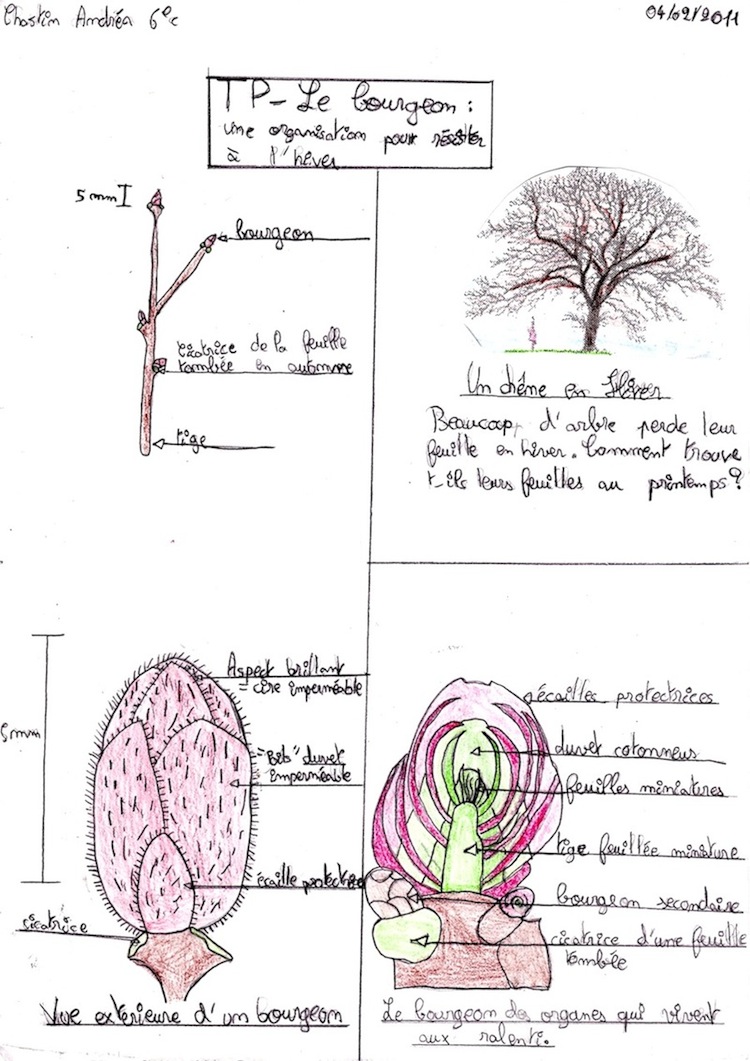 Chostin Andréa 6e c
04/02/2011
TP - Le bourgeon :
une organisation pour résister
à l'hiver
5 mm
bourgeon
cicatrice de la feuille
tombée en automne
tige
Un chêne en Hiver
Beaucoup d'arbre perde leur
feuille en hiver. Comment trouve
t-ils leurs feuilles au printemps?
5mm
Aspect brillant
= cire imperméable
duvet
imperméable
écaille protectrice
cicatrice
Vue extérieure d'un bourgeon
écailles protectrices
duvet cotonneus
feuilles miniatures
tige feuillée miniature
bourgeon secondaire
cicatrice d'une feuille
tombée
Le bourgeon des organes qui vivent
aux ralenti.